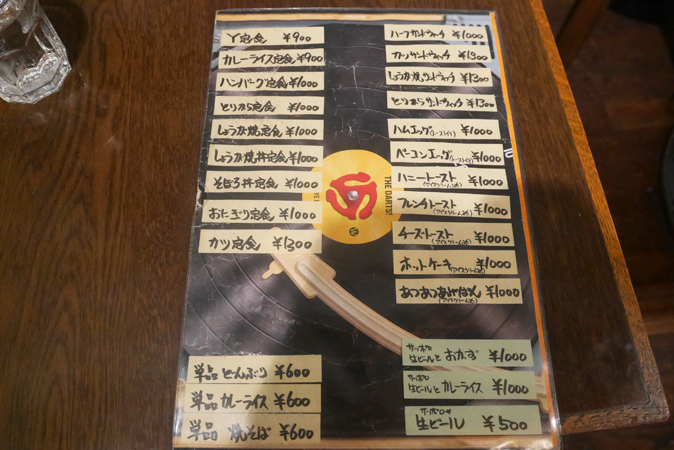 Y定食 ¥900
カレーライス定食 ¥900
ハンバーグ定食 ¥1000
とりから定食 ¥1000
しょうが焼定食 ¥1000
しょうが焼丼定食 ¥1000
そぼろ丼定食 ¥1000
おにぎり定食 ¥1000
カツ定食 ¥1300
単品 どんぶり ¥600
単品 カレーライス ¥600
単品 焼そば ¥600
THE DARTS!
ハーフサンドウィッチ ¥1000
カツサンドウィッチ ¥1300
しょうが焼サンドウィッチ ¥1300
とりからサンドウィッチ ¥1300
ハムエッグ(トースト付) ¥1000
ベーコンエッグ(トースト付) ¥1000
ハニートースト ¥1000
(アイスクリーム添)
フレンチトースト ¥1000
(アイスクリーム添)
チーズトースト ¥1000
(アイスクリーム添)
ホットケーキ(アイスクリーム添) ¥1000
あつあつあげぱん ¥1000
(アイスクリーム添)
サッポロ
生ビールと おかず ¥1000
サッポロ
生ビールと カレーライス ¥1000
サッポロ
生ビール ¥500